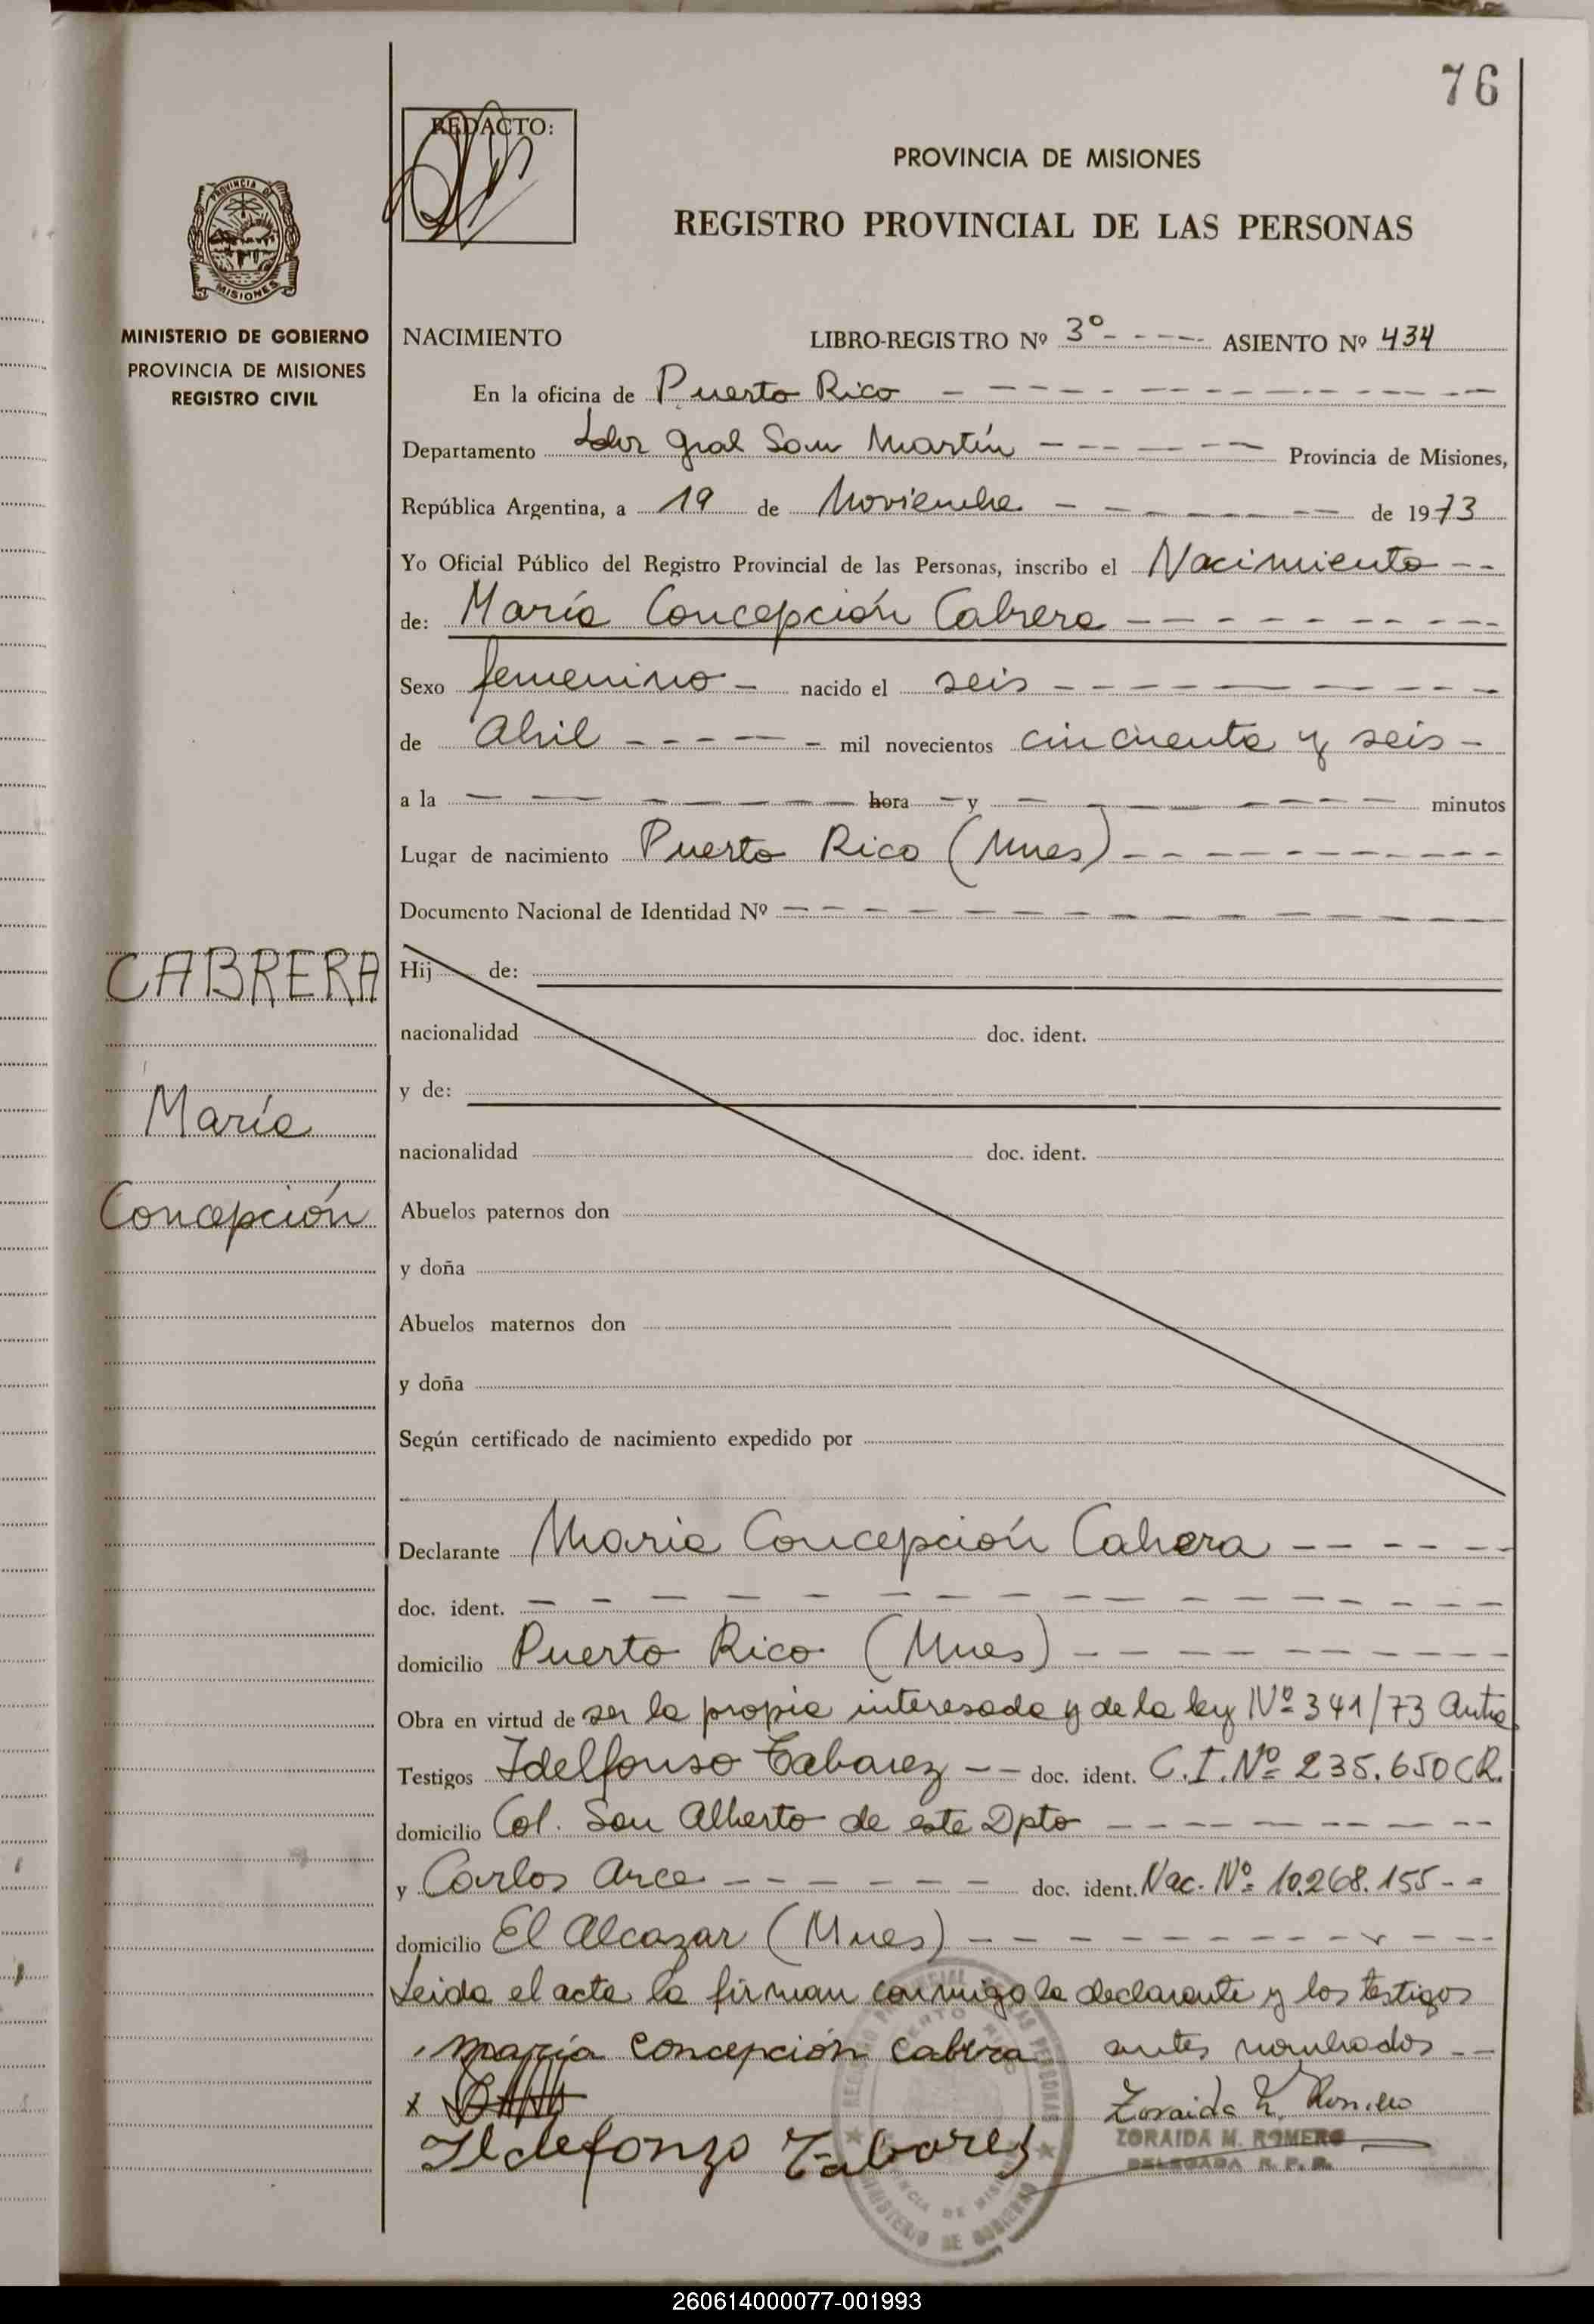 76
REDACTO:
PROVINCIA DE MISIONES
REGISTRO PROVINCIAL DE LAS PERSONAS
PROVINCIA DE
MISIONES
MINISTERIO DE GOBIERNO
PROVINCIA DE MISIONES
REGISTRO CIVIL
NACIMIENTO LIBRO-REGISTRO Nº 3º - - - - ASIENTO Nº 434
En la oficina de Puerto Rico
Departamento Ldor Gral San Martín Provincia de Misiones,
República Argentina, a 19 de Noviembre de 1973
Yo Oficial Público del Registro Provincial de las Personas, inscribo el Nacimiento
de: María Concepción Cabrera
Sexo femenino nacido el seis
de Abril mil novecientos cincuenta y seis
a la hora y minutos
Lugar de nacimiento Puerto Rico (Mnes)
Documento Nacional de Identidad Nº
CABRERA
María
Concepción
Hij de:
nacionalidad doc. ident.
y de:
nacionalidad doc. ident.
Abuelos paternos don
y doña
Abuelos maternos don
y doña
Según certificado de nacimiento expedido por
Declarante María Concepción Cabrera
doc. ident.
domicilio Puerto Rico (Mnes)
Obra en virtud de ser la propia interesada y de la ley Nº 341/73
Testigos Idelfonso Tabarez doc. ident. C.I. Nº 235.650 CR.
domicilio Col. San Alberto de este Dpto
y Carlos Arce doc. ident. Nac. Nº 10.268.155
domicilio El Alcazar (Mnes)
Leida el acta la firman conmigo la declarante y los testigos
antes nombrados
maría concepción cabrera
x
Zoraida M. Romero
Ildefonzo Tabarez
ZORAIDA M. ROMERO
DELEGADA R. P. P.
REGISTRO PROVINCIAL DE LAS PERSONAS
PUERTO RICO
PROVINCIA DE MISIONES
MINISTERIO DE GOBIERNO
260614000077-001993